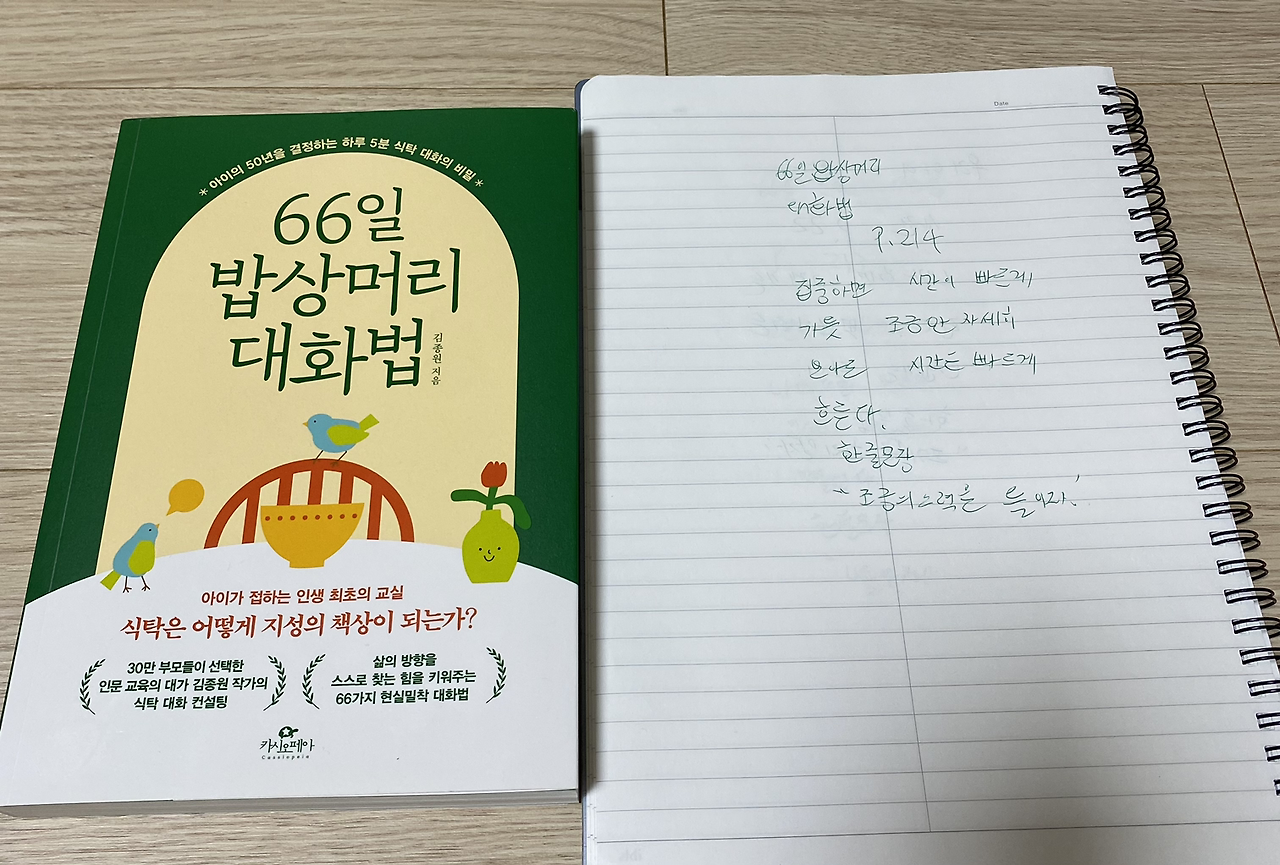 * 아이의 50년을 결정하는 하루 5분 식탁 대화의 비밀 *
66일
밥상머리
대화법
김종원 지음
아이가 접하는 인생 최초의 교실
식탁은 어떻게 지성의 책상이 되는가?
30만 부모들이 선택한
인문 교육의 대가 김종원 작가의
식탁 대화 컨설팅
삶의 방향을
스스로 찾는 힘을 키워주는
66가지 현실밀착 대화법
카시오페아
Cassiopeia
Date
66일 밥상머리
대화법
P.214
집중하면 시간이 빠르게
가듯 조금만 자세히
보아도 시간은 빠르게
흐른다.
한글문장
"조금의 노력을 들이자!